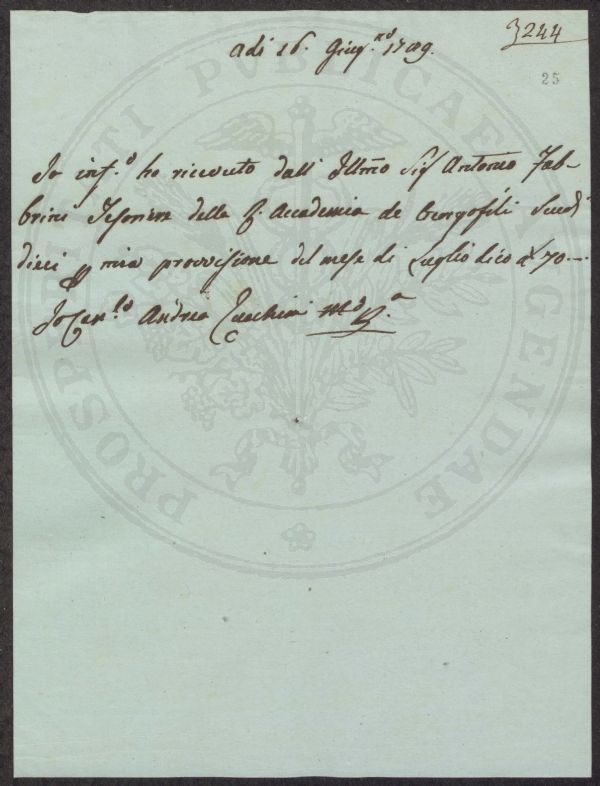 3244
Adi 26. Giug.no 1789.
25
Io inf.o ho ricevuto dall' Illmo Sig Antonio Fab-
brini Tesoriere della R. Accademia de Georgofili Scudi
dieci p mia provvisione del mese di Luglio dico 70-.
Io Can.co Andrea Zucchini mo pa
PROSPERITATI PUBLICAE AUGENDAE